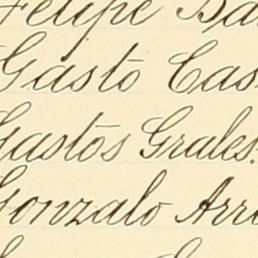 Felipe Ba
Gasto Cas
Gastos Grales.
Gonzalo Arr